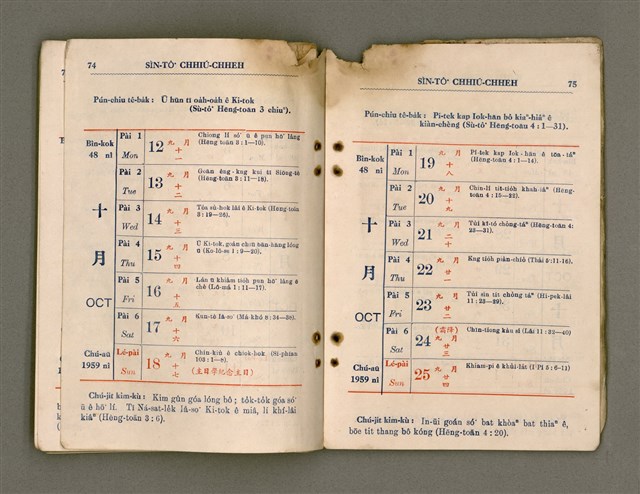 74 SÌN-TÔ͘ CHHIÚ-CHHEH
Pún-chiu tê-bák : Ū hūn tī oáh-oáh ê Ki-tok
(Sù-tô͘ Hêng-toān 3 chiuⁿ).
Bîn-kok
48 nî
十
月
OCT
Chú-aū
1959 nî
Pài 1
Mon
12 九月十一
Chiong lí só͘ ū ê pun hō͘ lâng
(Hêng-toān 3 : 1—10).
Pài 2
Tue
13 九月十二
(Hêng-toān 3 : 11—18).
Pài 3
Wed
14 九月十三
Tōa sù-hok lāi ê Ki-tok (Hêng-toān
3 : 19—26).
Pài 4
Thu
15 九月十四
Ū Ki-tok, goán chiū bān-hāng lóng
ū (Ko-lô-se 1 : 9—20).
Pài 5
Fri
16 九月十五
Lán ū khiàm tióh pun hō͘ lâng ê
chè (Lô-má 1 : 11—17).
Pài 6
Sat
17 九月十六
Kun-tè Iâ-so͘ (Má-khó 8 : 34—38).
Lé-pài
Sun
18 九月十七
Chin-kiù ê chiok-hok. (Si-phian
103 : 1—8).
(主日學紀念主日)
Chú-jit kim-kù : Kim gûn góa lóng bô ; tók-tók góa só͘
ū ê hō͘ lí. Tī Ná-sat-lék Iâ-so͘ Ki-tok ê miâ, lí khí-lâi
kiâⁿ (Hêng-toān 3 : 6).
SÌN-TÔ͘ CHHIÚ-CHHEH 75
Pún-chiu tê-bák : Pí-tek kap Iok-hān bô kiaⁿ-hiâⁿ ê
kiàn-chèng (Sù-tô͘ Hêng-toān 4 : 1—31).
Bîn-kok
48 nî
十
月
OCT
Chú-aū
1959 nî
Pài 1
Mon
19 九月十八
Pí-tek kap Iok-hān ê tōa-táⁿ
(Hêng-toān 4 : 1—14).
Pài 2
Tue
20 九月十九
Chin-lí tit-tióh khah-iâⁿ (Hêng-
toān 4 : 15—22).
Pài 3
Wed
21 九月二十
Tùi kî-tó chòng-táⁿ (Hêng-toān 4:
23—31).
Pài 4
Thu
22 九月廿一
Kng tióh piàn-chiò (Thài 5:11-16).
Pài 5
Fri
23 九月廿二
Tùi sìn tit chòng-táⁿ (Hi-pek-lâi
11 : 23—39).
Pài 6
Sat
24 (霜降) 九月廿三
Chin-tiong kàu sí (Lâi 11 : 32—40)
Lé-pài
Sun
25 九月廿四
Khiam-pi ê khùi-lát (I Pí 5 : 6-11)
Chú-jit kim-kù : In-ūi goán só͘ bat khòaⁿ bat thiaⁿ ê,
bōe tit thang bô kóng (Hêng-toān 4 : 20).